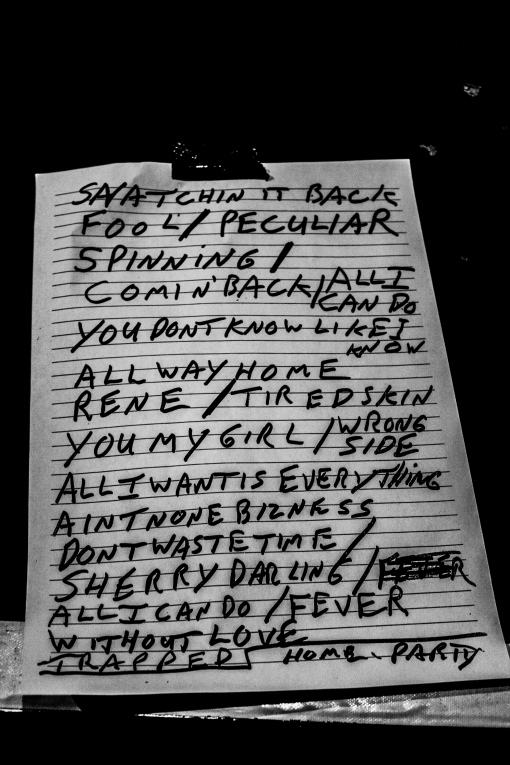 SNATCHIN IT BACK
FOOL / PECULIAR
SPINNING /
COMIN' BACK / ALL I CAN DO
YOU DONT KNOW LIKE I KNOW
ALL WAY HOME
RENE / TIRED SKIN
YOU MY GIRL / WRONG SIDE
ALL I WANT IS EVERYTHING
AINT NONE BIZNESS
DONT WASTE TIME /
SHERRY DARLING /
ALL I CAN DO / FEVER
WITHOUT LOVE
TRAPPED HOME - PARTY